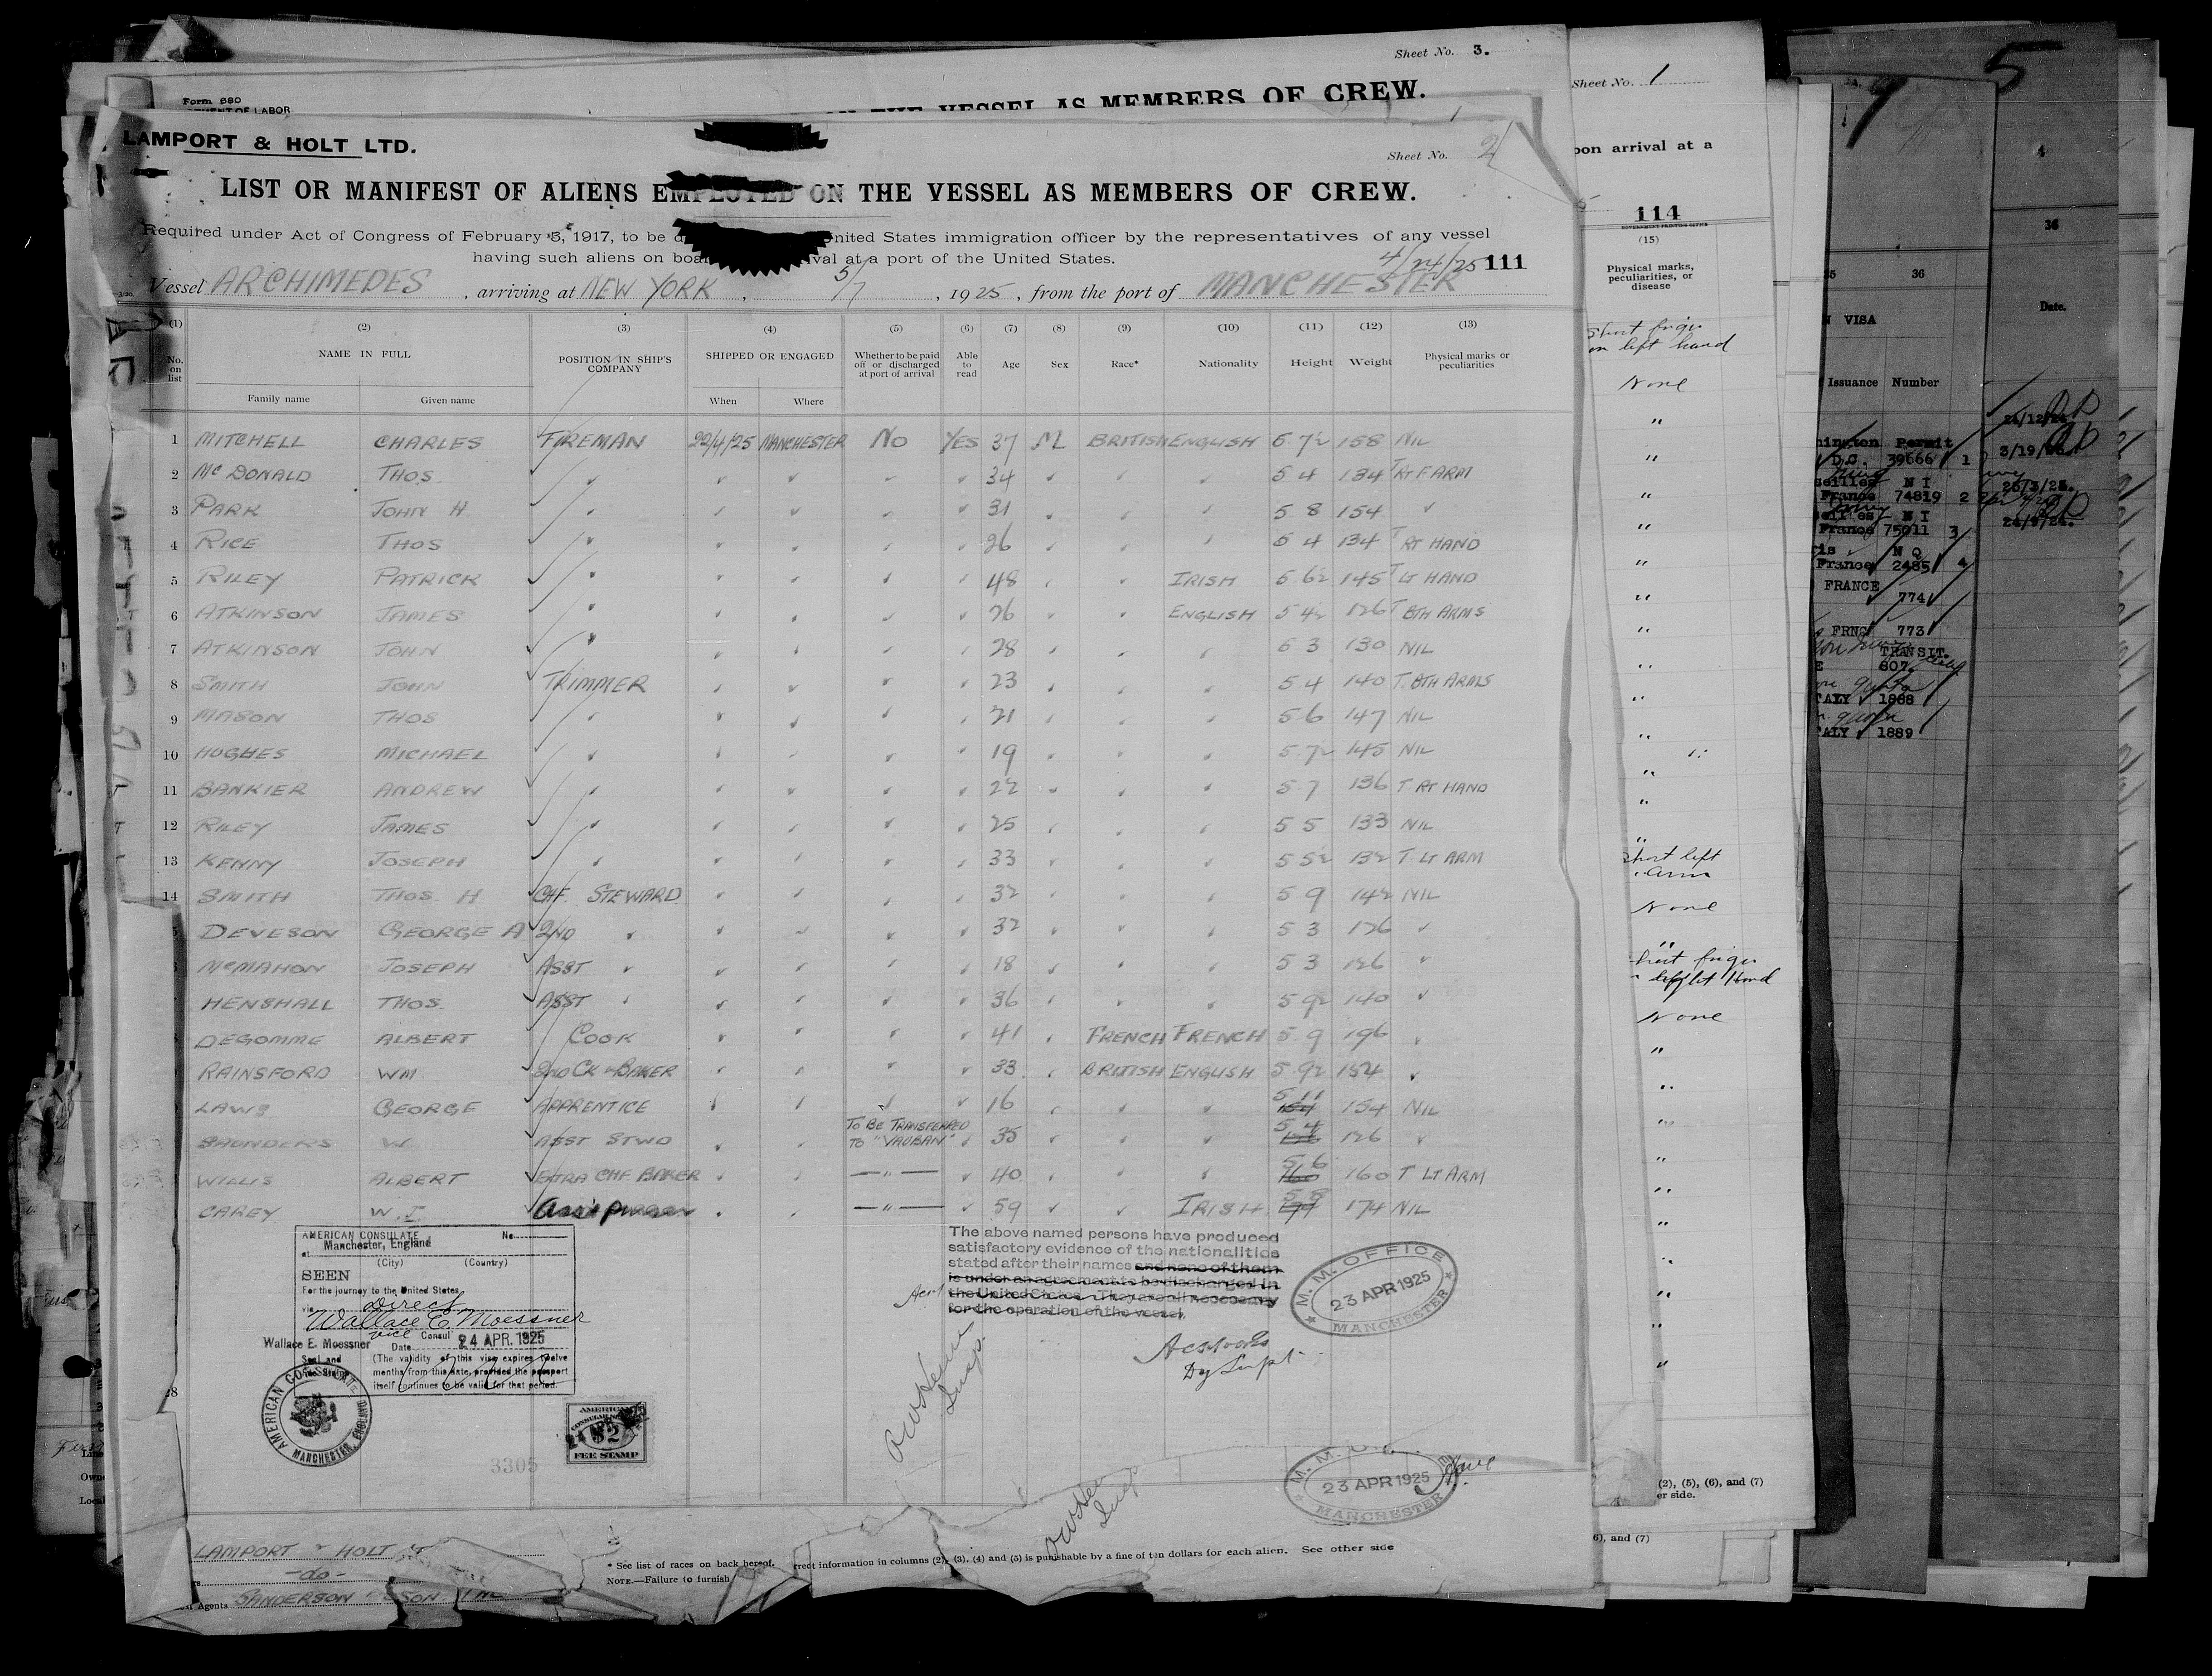 Sheet No. 3.
Form 680
THE VESSEL AS MEMBERS OF CREW.
LAMPORT & HOLT LTD.
Sheet No. 2
LIST OR MANIFEST OF ALIENS EMPLOYED ON THE VESSEL AS MEMBERS OF CREW.
Required under Act of Congress of February 5, 1917, to be United States immigration officer by the representatives of any vessel
having such aliens on board arrival at a port of the United States.
4/24/25 111
Vessel ARCHIMEDES, arriving at NEW YORK, 5/7, 1925, from the port of MANCHESTER
(1) (2) (3) (4) (5) (6) (7) (8) (9) (10) (11) (12) (13)
No. on list NAME IN FULL POSITION IN SHIP'S COMPANY SHIPPED OR ENGAGED Whether to be paid off or discharged at port of arrival Able to read Age Sex Race* Nationality Height Weight Physical marks or peculiarities
Family name Given name When Where
1 MITCHELL CHARLES FIREMAN 22/4/25 MANCHESTER NO YES 37 M BRITISH ENGLISH 5 7½ 158 NIL
2 McDONALD THOS. 34 5 4 134 T RT F ARM
3 PARK JOHN H 31 5 8 154
4 RICE THOS 26 5 4 134 T RT HAND
5 RILEY PATRICK 48 IRISH 5 6½ 145 T LT HAND
6 ATKINSON JAMES 26 ENGLISH 5 4½ 126 T BTH ARMS
7 ATKINSON JOHN 28 5 3 130 NIL
8 SMITH JOHN TRIMMER 23 5 4 140 T. BTH ARMS
9 MASON THOS 21 5 6 147 NIL
10 HUGHES MICHAEL 19 5 7½ 145 NIL
11 BANKIER ANDREW 22 5 7 136 T RT HAND
12 RILEY JAMES 25 5 5 133 NIL
13 KENNY JOSEPH 33 5 5½ 132 T LT ARM
14 SMITH THOS. H CHF. STEWARD 32 5 9 142 NIL
DEVESON GEORGE A 2ND 32 5 3 126
McMAHON JOSEPH ASST 18 5 3 126
HENSHALL THOS. ASST 36 5 9½ 140
DEGOMME ALBERT COOK 41 FRENCH FRENCH 5 9 196
RAINSFORD WM 2ND CK & BAKER 33 BRITISH ENGLISH 5 9½ 154
LAWS GEORGE APPRENTICE 16 5 11 154 NIL
SAUNDERS W. ASST STWD TO BE TRANSFERRED TO "VAUBAN" 35 5 4 126
WILLIS ALBERT EXTRA CHF BAKER — " — 40 5 6 160 T LT ARM
CAREY W. I. — " — 59 IRISH 5 8 174 NIL
AMERICAN CONSULATE No
at Manchester, England
(City) (Country)
SEEN
For the journey to the United States
via direct
Wallace E. Moessner
Wallace E. Moessner vice Consul
Date 24 APR. 1925
Seal and
(The validity of this visa expires twelve
months from this date, provided the passport
itself continues to be valid for that period.
AMERICAN CONSULATE
MANCHESTER, ENGLAND
AMERICAN
CONSULAR SERVICE
$2
FEE STAMP
3305
The above named persons have produced
satisfactory evidence of the nationalities
stated after their names and none of them
is under an agreement to be discharged in
the United States. They are all necessary
for the operation of the vessel.
M. M. OFFICE
23 APR 1925
MANCHESTER
Dy Supt
23 APR 1925
MANCHESTER
28
LAMPORT & HOLT
-do-
Agents SANDERSON & SON INC
* See list of races on back hereof.
NOTE.—Failure to furnish
rrect information in columns (2), (3), (4) and (5) is punishable by a fine of ten dollars for each alien. See other side
Sheet No. 1
pon arrival at a
114
(15)
Physical marks,
peculiarities, or
disease
Short finger
on left hand
None
Short left
arm
None
Short finger
None
(2), (5), (6), and (7)
er side.
6), and (7)
5
4
36
35 36
Date.
VISA
Issuance Number
24/12/24
Permit
D.C. 39666 1
3/19/25
N I
France 74819 2
N I
France 75011 3
N Q
France 2485 4
FRANCE
774
FRNC 773
TRANSIT.
807
ITALY 1888
ITALY 1889